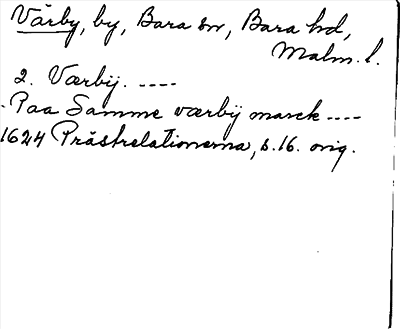 Vårby, by, Bara sn, Bara hd,
Malm. l.
2. Værbÿ. ----
- Paa Samme værbÿ marck ----
1624 Prästrelationerna, s. 16. orig.